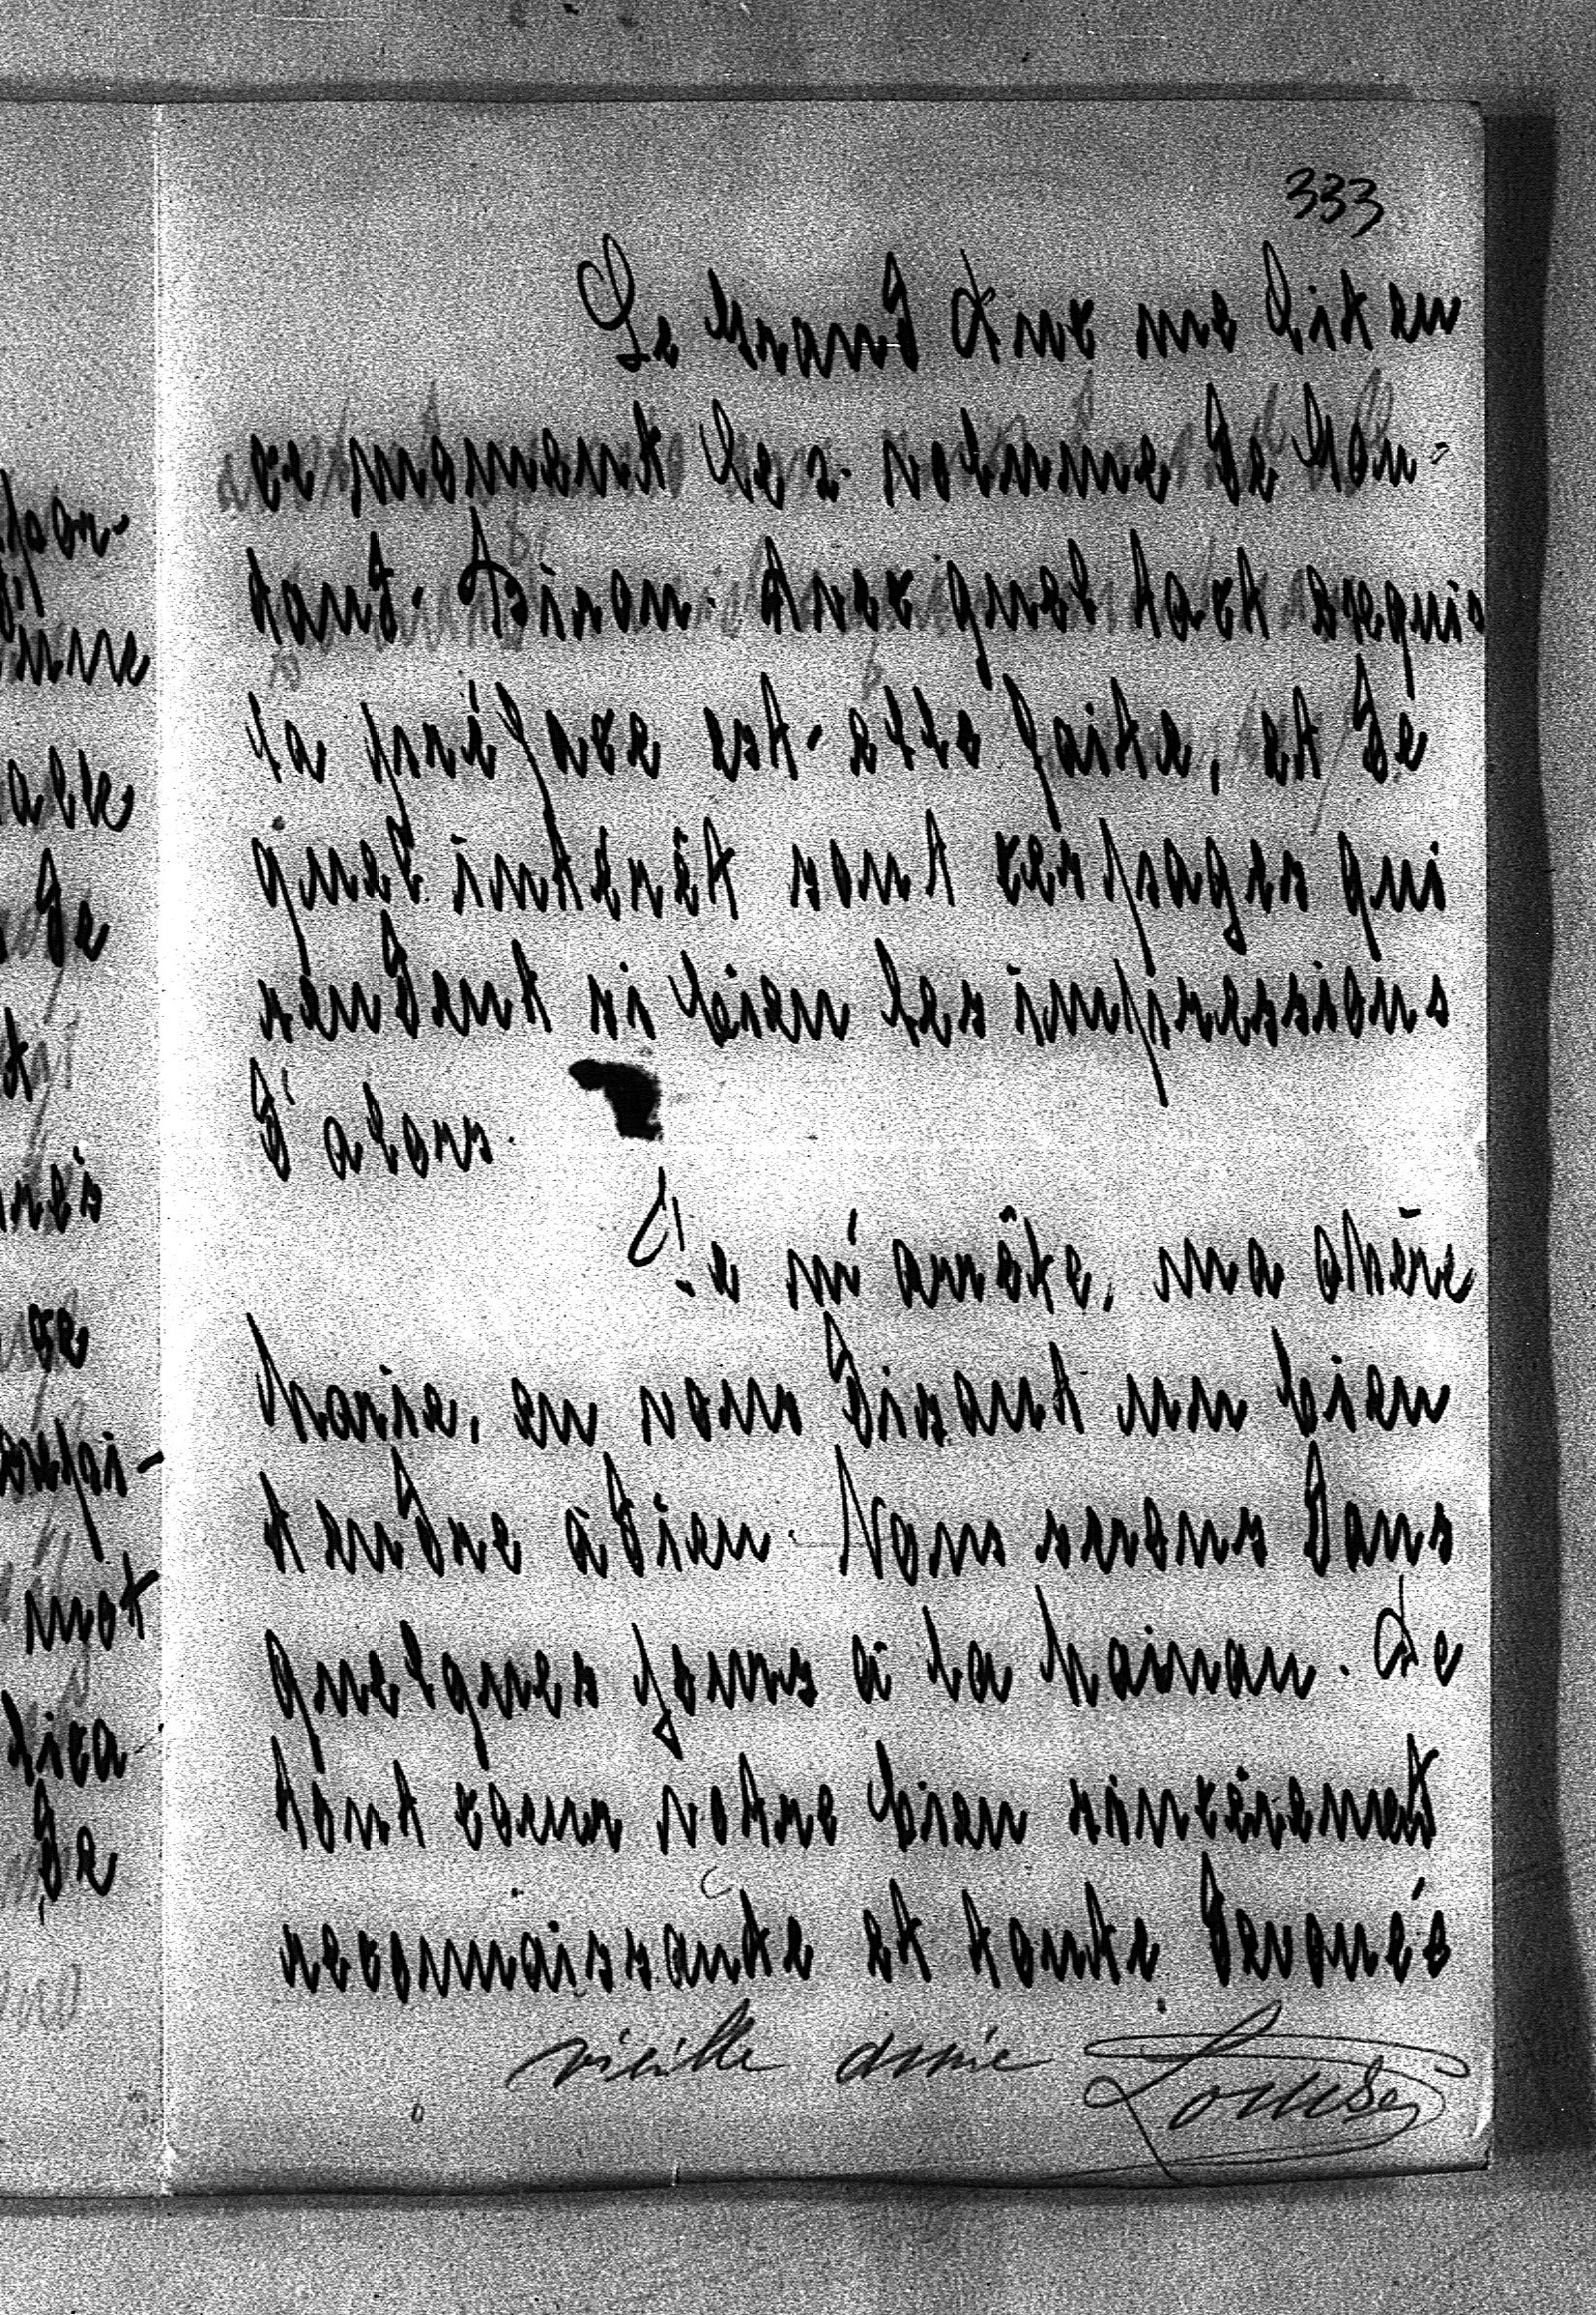 333
Le Grand Duc me lit en
ce moment le 2. volume de Gon-
taud. Biron. Avec quel tact exquis
la préface est-elle faite, et de
quel intérêt sont ces pages qui
rendent si bien les impressions
d'alors.
Je m'arrête, ma chère
Marie, en vous disant un bien
tendre àdieu. Nous serons dans
quelques jours à la Mainau. De
tout coeur votre bien sincèrement
reconnaissante et toute devouée
vieille amie Louise